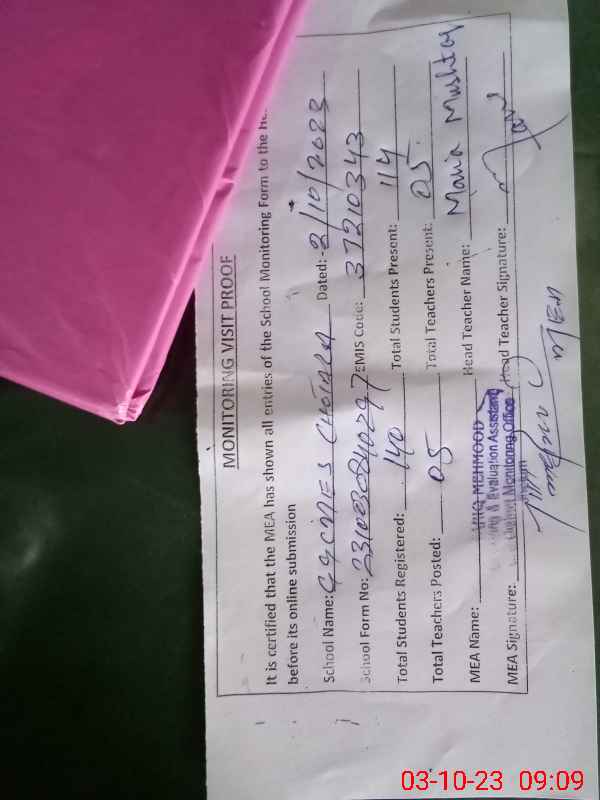 MONITORING VISIT PROOF
It is certified that the MEA has shown all entries of the School Monitoring Form to the
before its online submission
School Name: Dated: 2/10/2023
School Form No: EMIS Code: 37210343
Total Students Registered: 140 Total Students Present: 114
Total Teachers Posted: 05 Total Teachers Present: 05
MEA Name: MEHMOOD Head Teacher Name: Maria Mushtaq
& Evaluation Assistant
District Monitoring Office
MEA Signature: Head Teacher Signature:
MEA
03-10-23 09:09